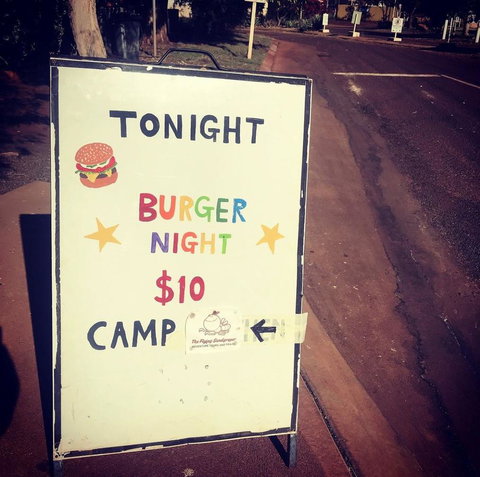 TONIGHT
BURGER
NIGHT
$10
CAMP
The Flying Sandgroper